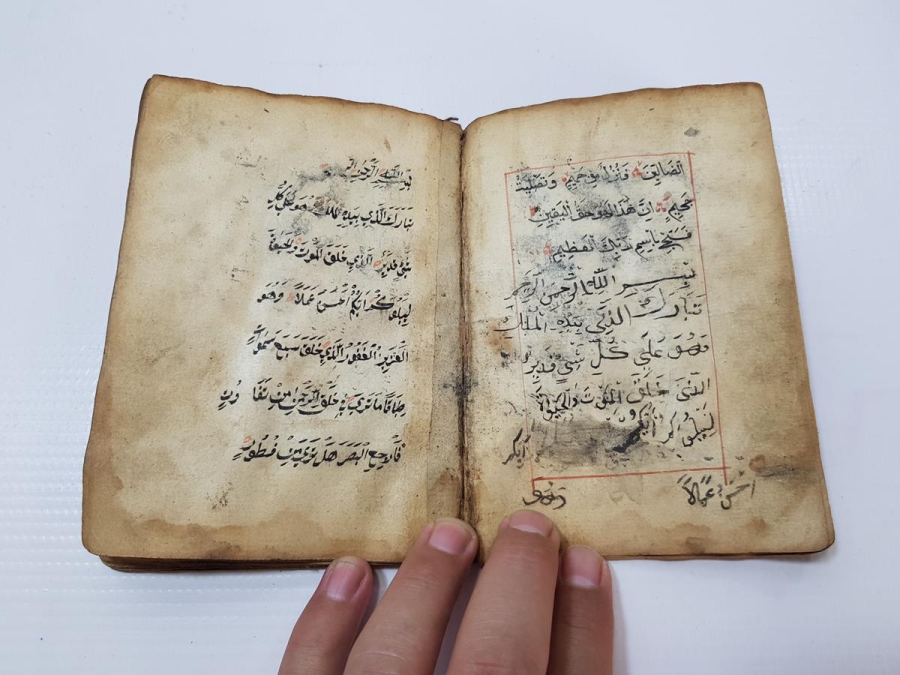 الضالين فنزل من حميم وتصلية
جحيم ان هذا لهو حق اليقين
فسبح باسم ربك العظيم
بسم الله الرحمن الرحيم
تبارك الذي بيده الملك
وهو على كل شي قدير
الذي خلق الموت والحيوة
ليبلوكم ايكم
ايكم
احسن عملا وهو
بسم الله الرحمن الرحيم
تبارك الذي بيده الملك وهو على كل
شئ قدير الذي خلق الموت والحيوة
ليبلوكم ايكم احسن عملا وهو
العزيز الغفور الذي خلق سبع سموت
طباقا ما ترى في خلق الرحمن من تفاوت
فارجع البصر هل ترى من فطور